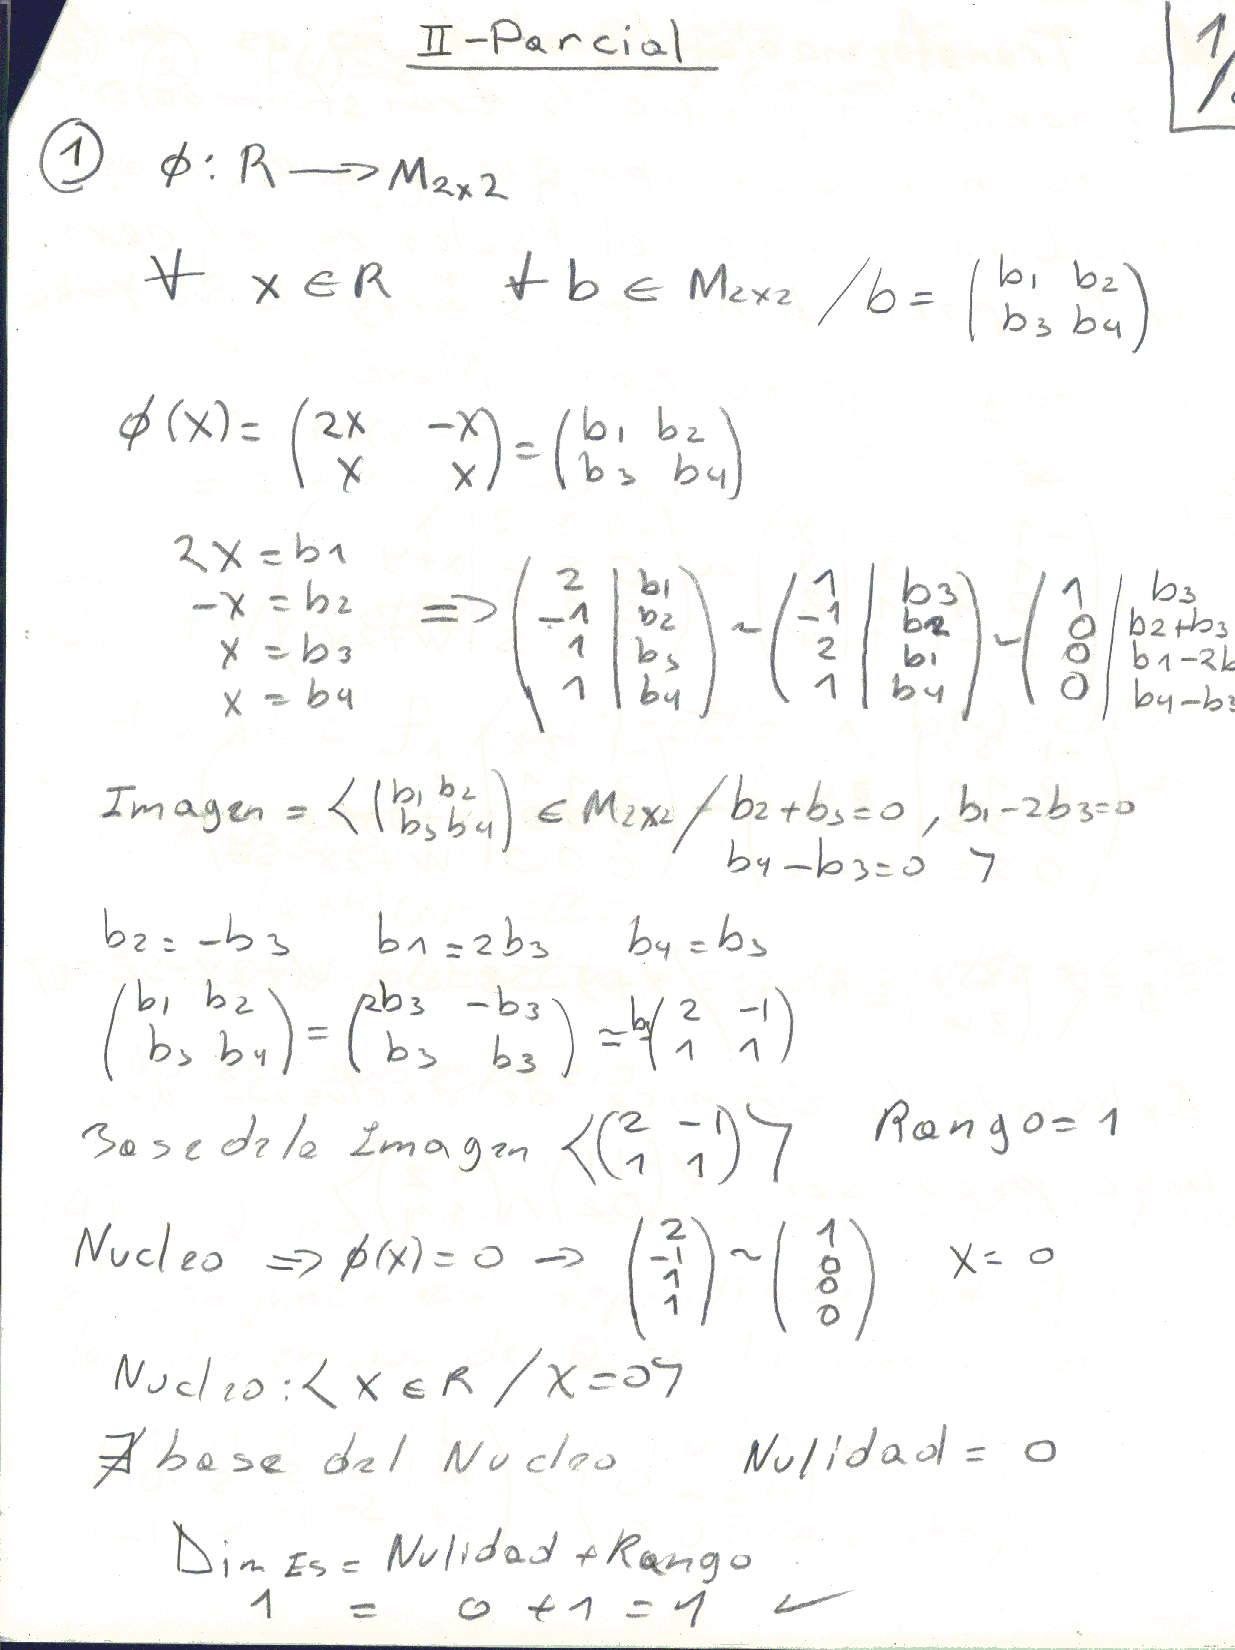 II-Parcial
1/
① ϕ: R → M2x2
∀ x ∈ R ∀ b ∈ M2x2 / b = (b1 b2
b3 b4)
ϕ(x) = (2x -x
x x) = (b1 b2
b3 b4)
2x = b1
-x = b2
x = b3
x = b4
⇒ (2 | b1
-1 | b2
1 | b3
1 | b4) ~ (1 | b3
-1 | b2
2 | b1
1 | b4) ~ (1 | b3
0 | b2+b3
0 | b1-2b
0 | b4-b3
Imagen = <(b1 b2
b3 b4) ∈ M2x2 / b2+b3=0, b1-2b3=0
b4-b3=0 >
b2 = -b3 b1 = 2b3 b4 = b3
(b1 b2
b3 b4) = (2b3 -b3
b3 b3) ≈ b3(2 -1
1 1)
Base de la Imagen <(2 -1
1 1)> Rango = 1
Nucleo ⇒ ϕ(x) = 0 → (2
-1
1
1) ~ (1
0
0
0) x = 0
Nucleo: < x ∈ R / x = 0 >
∄ base del Nucleo Nulidad = 0
Dim Es = Nulidad + Rango
1 = 0 + 1 = 1 ✓